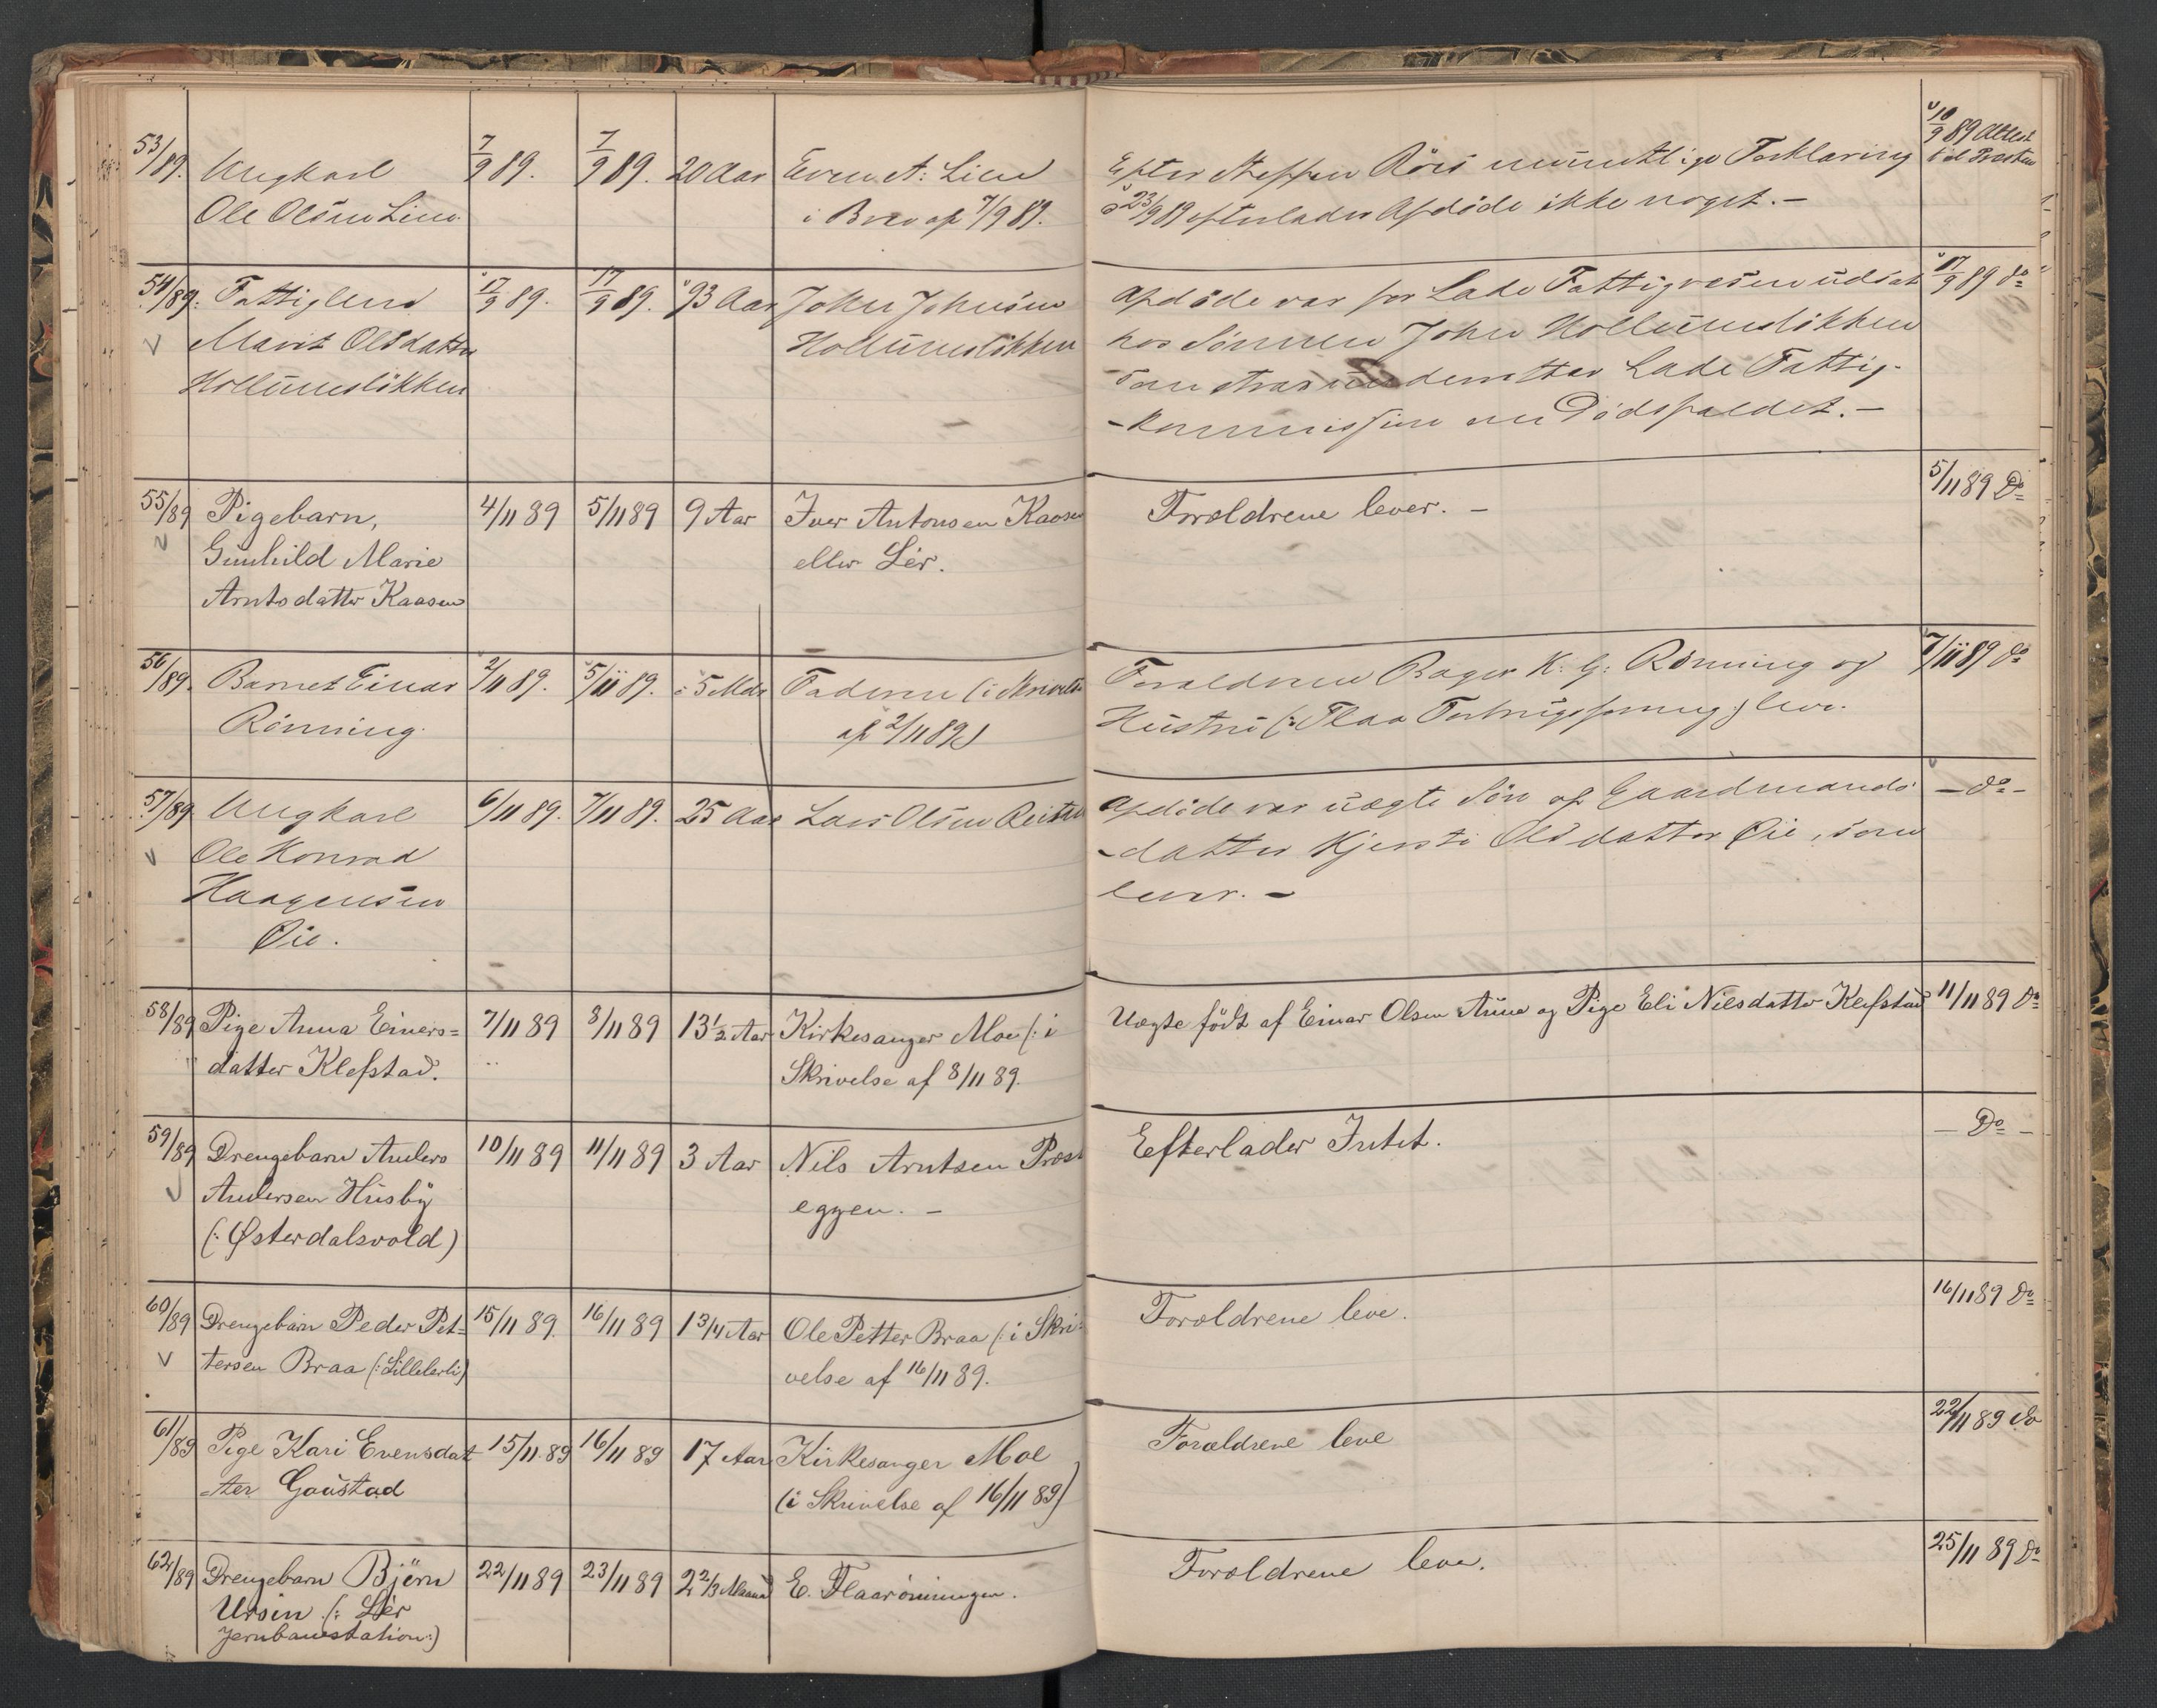 53/89. Ungkarl 7/9 89. 7/9 89. 20 Aar Even A: Lien Efter Steffen Rörs mundtlige Forklaring 10/9 89 Attest
Ole Olsen Lien i Brev af 7/9 89. 23/9 89 efterlader Afdöde ikke noget. — til Presten
54/89. Fattiglem 17/9 89. 17/9 89. 93 Aar John Johnsen Afdöde var for Lade Fattigvesen udsat 17/9 89 do
Marit Olsdatter Hollumslökken hos Sönnen John Hollumslökken
Hollumslökken som strax underretter Lade Fattig-
-kommission om Dödsfaldet. —
55/89 Pigebarn, 4/11 89 5/11 89 9 Aar Iver Antonsen Kaasen Forældrene lever. — 5/11 89 Do
Gunhild Marie eller Lér.
Arntsdatter Kaasen
56/89. Barnet Einar 2/11 89. 5/11 89. 5 Mdr Faderen (i Skrivelse Forældrene Bager K. G: Rönning og 7/11 89 do
Rönning. af 2/11 89) Hustru (: Flaa :) lever.
57/89 Ungkarl 6/11 89. 7/11 89. 25 Aar Lars Olsen Reitan Afdöde var uægte Sön af Gaardmands — do —
Ole Konrad -datter Kjersti Olsdatter Øie, som
Haagensen lever. —
Øie.
58/89 Pige Anna Einers= 7/11 89 8/11 89 13 1/2 Aar Kirkesanger Moe (: i Uægte födt af Einar Olsen Aune og Pige Eli Nilsdatter Klefstad 11/11 89 Do
datter Klefstad. Skrivelse af 8/11 89.
59/89 Drengebarn Anders 10/11 89 11/11 89 3 Aar Nils Arntsen Præst Efterlader Intet. — Do —
Andersen Husby eggen. —
(: Østerdalsvold)
60/89 Drengebarn Peder Pet= 15/11 89. 16/11 89 1 3/4 Aar Ole Petter Braa (: i Skri= Forældrene leve. 16/11 89 Do
tersen Braa (: Lilleberli) velse af 16/11 89.
61/89 Pige Kari Evensdat 15/11 89 16/11 89 17 Aar Kirkesanger Moe Forældrene leve 22/11 89 Do
-ter Gaustad (i Skrivelse af 16/11 89)
62/89 Drengebarn Björn 22/11 89 23/11 89 2 2/3 Maaned E. Flaarönningen. Forældrene leve. 25/11 89 Do
Ursin (: Lér
Jernbanestation :)